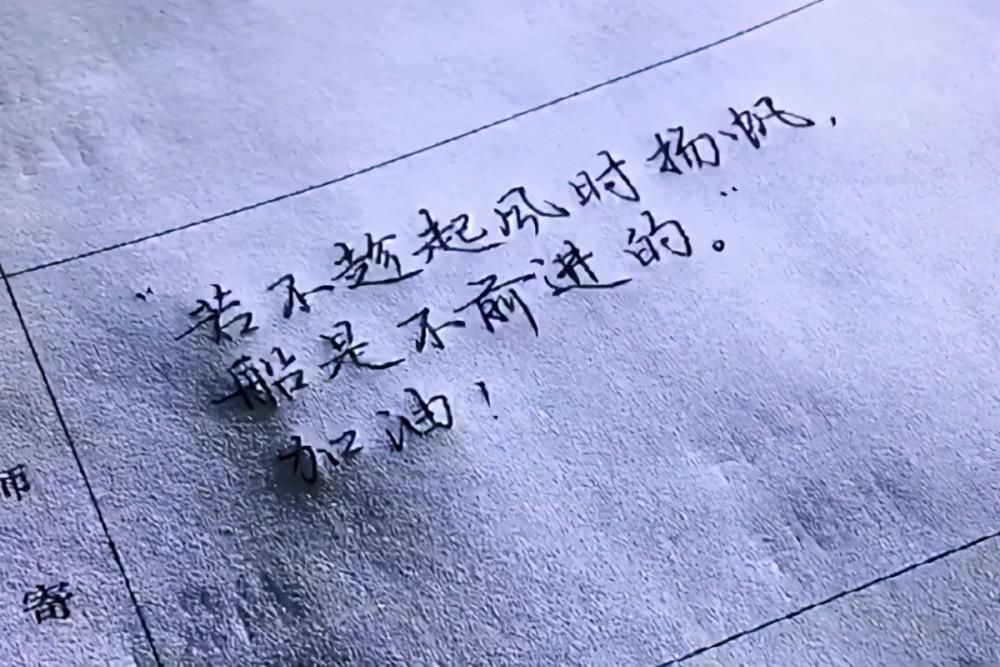 “若不趁起风时扬帆，
船是不前进的。”
加油！
师
寄